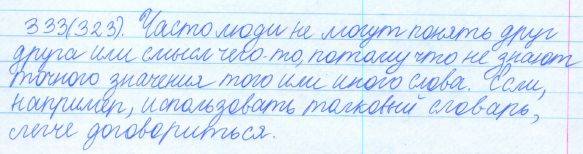 333(323). Часто люди не могут понять друг
друга или смысл чего-то, потому что не знают
точного значения того или иного слова. Если,
например, использовать толковый словарь,
легче договориться.